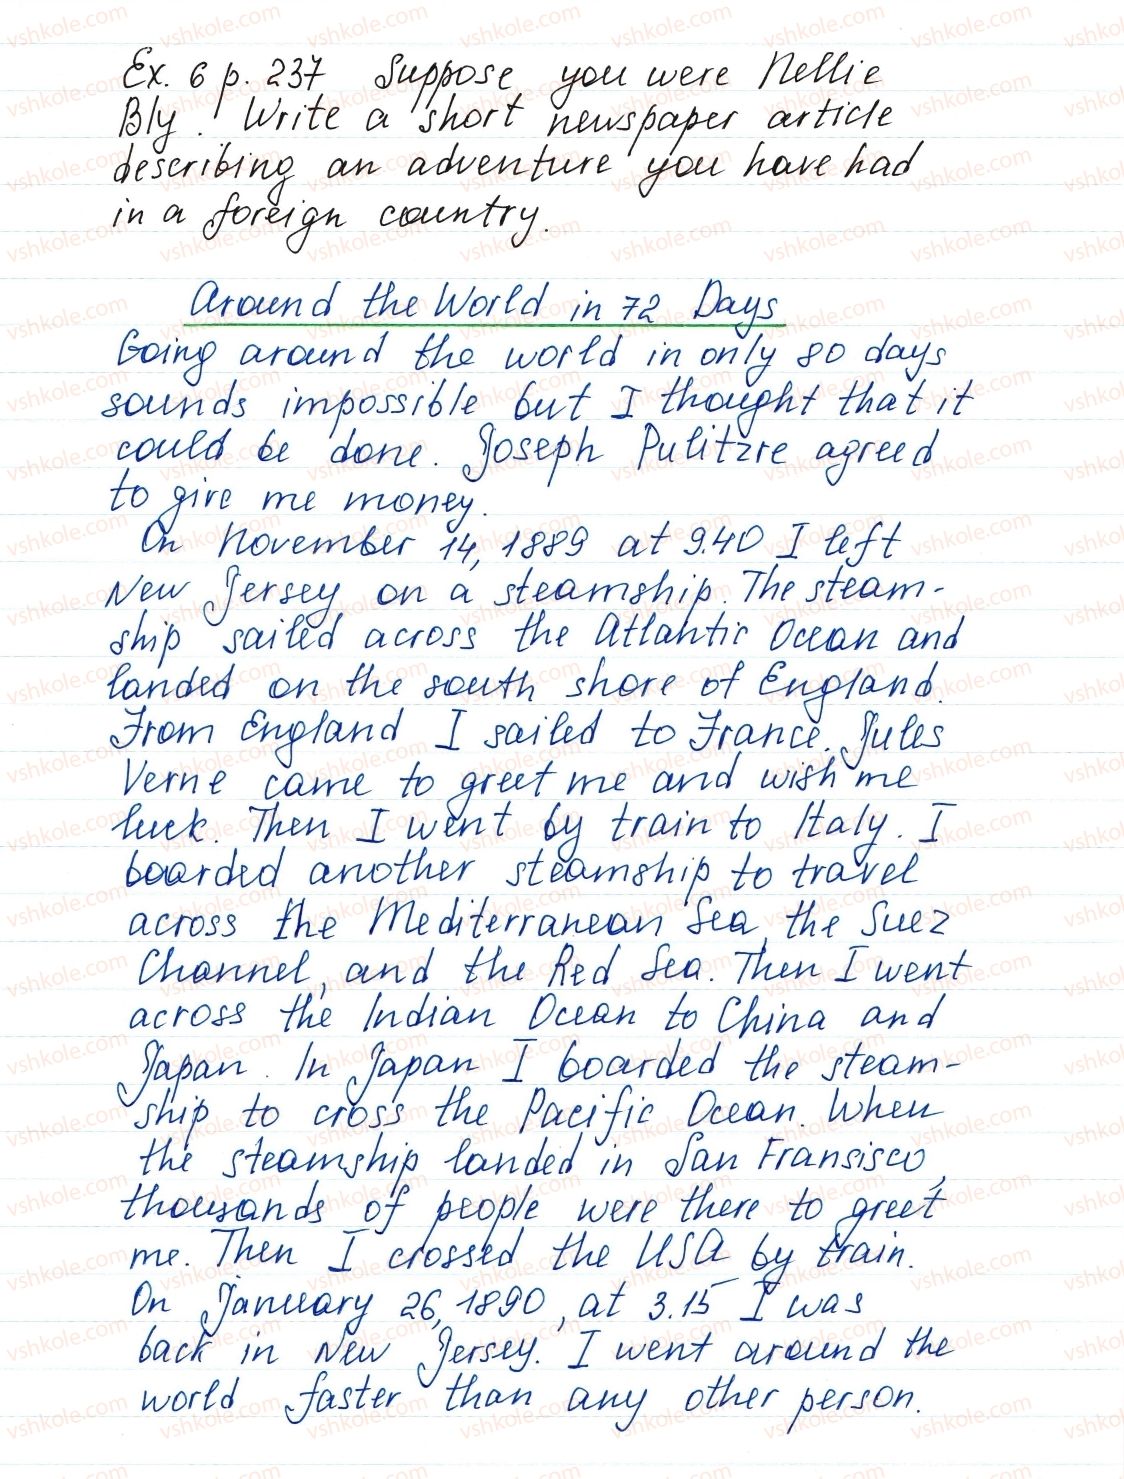 Ex. 6 p. 237 Suppose you were Nellie
Bly. Write a short newspaper article
describing an adventure you have had
in a foreign country.
Around the World in 72 Days
Going around the world in only 80 days
sounds impossible but I thought that it
could be done. Joseph Pulitzre agreed
to give me money.
On November 14, 1889 at 9.40 I left
New Jersey on a steamship. The steam-
ship sailed across the Atlantic Ocean and
landed on the south shore of England.
From England I sailed to France. Jules
Verne came to greet me and wish me
luck. Then I went by train to Italy. I
boarded another steamship to travel
across the Mediterranean Sea, the Suez
Channel, and the Red Sea. Then I went
across the Indian Ocean to China and
Japan. In Japan I boarded the steam-
ship to cross the Pacific Ocean. When
the steamship landed in San Fransisco,
thousands of people were there to greet
me. Then I crossed the USA by train.
On January 26, 1890, at 3.15 I was
back in New Jersey. I went around the
world faster than any other person.
vshkole.com